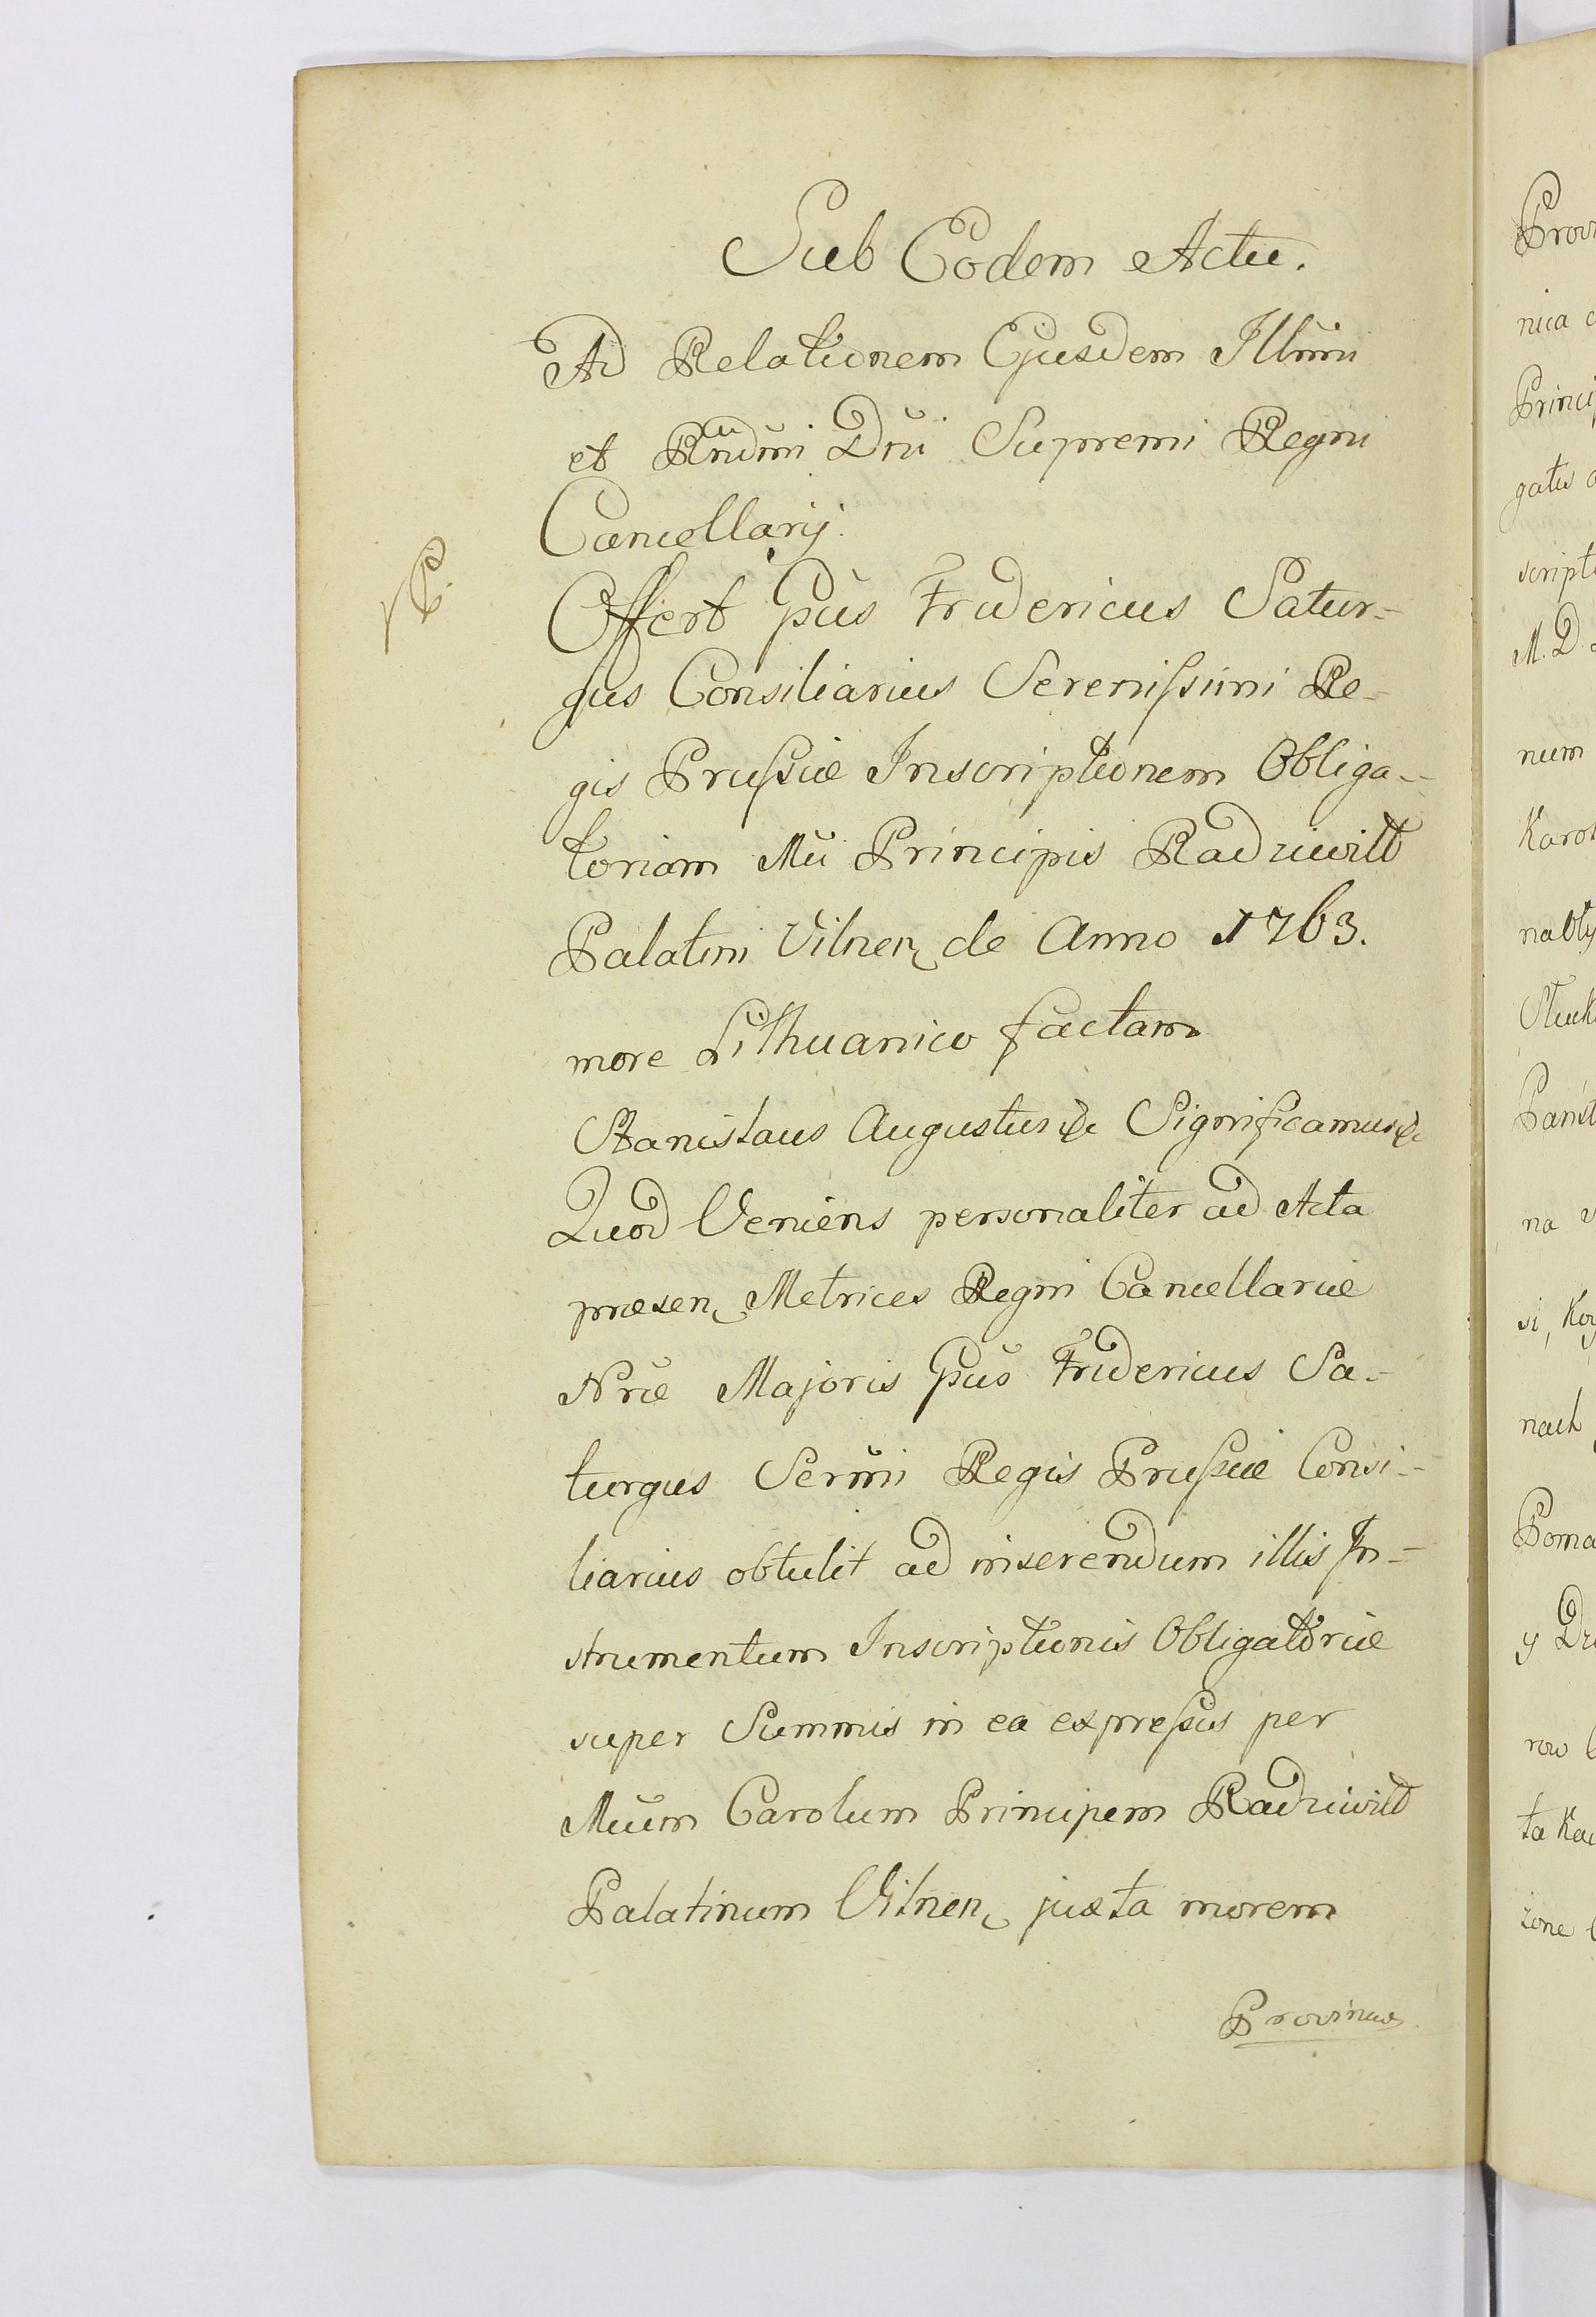 Sub Eodem Actu.
Ad Relationem Ejusdem Illmi
et Rndmi Dni Supremi Regni
Cancellarij.
Offert Gnus Fridericus Satur-
gus Consiliarius Serenissimi Re-
gis Prussiæ Inscriptionem Obliga-
toriam Mci Principis Radziwiłł
Palatini Vilnen de Anno 1763.
more Lithuanico factam
Stanislaus Augustus &c Significamus &c
Quod Veniens personaliter ad Acta
præsen Metrices Regni Cancellariæ
Nræ Majoris Gnus Fridericus Sa-
turgus Sermi Regis Prussiæ Consi-
liarius obtulit ad inserendum illis In-
strumentum Inscriptionis Obligatoriæ
super Summis in ea expressis per
Mcum Carolum Principem Radziwiłł
Palatinum Vilnen juxta morem
Provinciæ
Prov
nica
Princi
gatu
script
M. D.
num
Karol
na
si, Koy
nach
Poma
y
row
ta